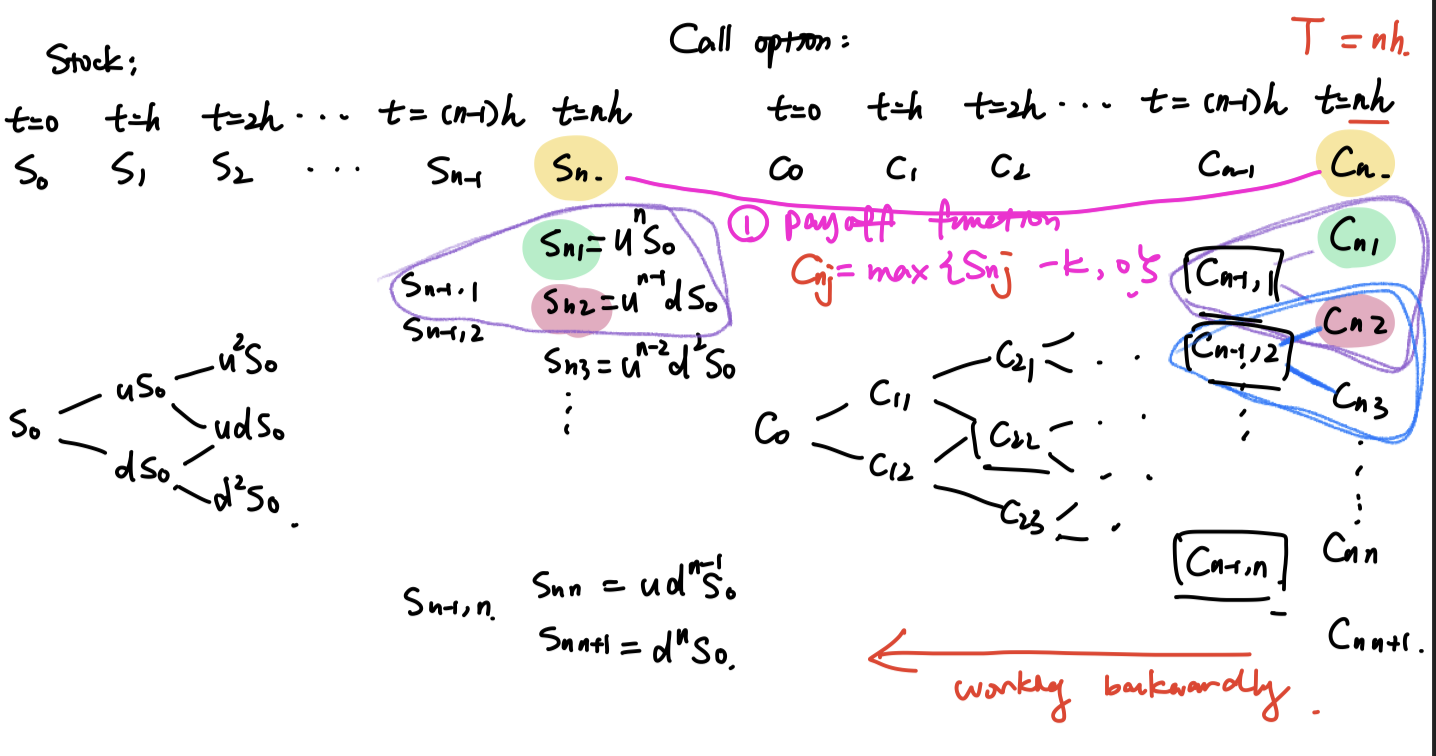 Stock:
t=0 t=h t=2h ... t=(n-1)h t=nh
S₀ S₁ S₂ ... Sₙ₋₁ Sₙ.
Sₙ₁=uⁿS₀
Sₙ₋₁,₁ Sₙ₂=uⁿ⁻¹dS₀
Sₙ₋₁,₂
Sₙ₃=uⁿ⁻²d²S₀
⋮
S₀
uS₀
dS₀
u²S₀
udS₀
d²S₀.
Sₙ₋₁,ₙ. Sₙₙ = udⁿ⁻¹S₀
Sₙₙ₊₁ = dⁿS₀.
Call option:
T = nh.
t=0 t=h t=2h ... t=(n-1)h t=nh
C₀ C₁ C₂ Cₙ₋₁ Cₙ.
① payoff function
Cₙⱼ=max{Sₙⱼ -k, 0}
C₀
C₁₁
C₁₂
C₂₁
C₂₂
C₂₃
Cₙ₋₁,₁
Cₙ₋₁,₂
⋮
Cₙ₋₁,ₙ
Cₙ₁
Cₙ₂
Cₙ₃
⋮
Cₙₙ
Cₙₙ₊₁.
working backwardly.